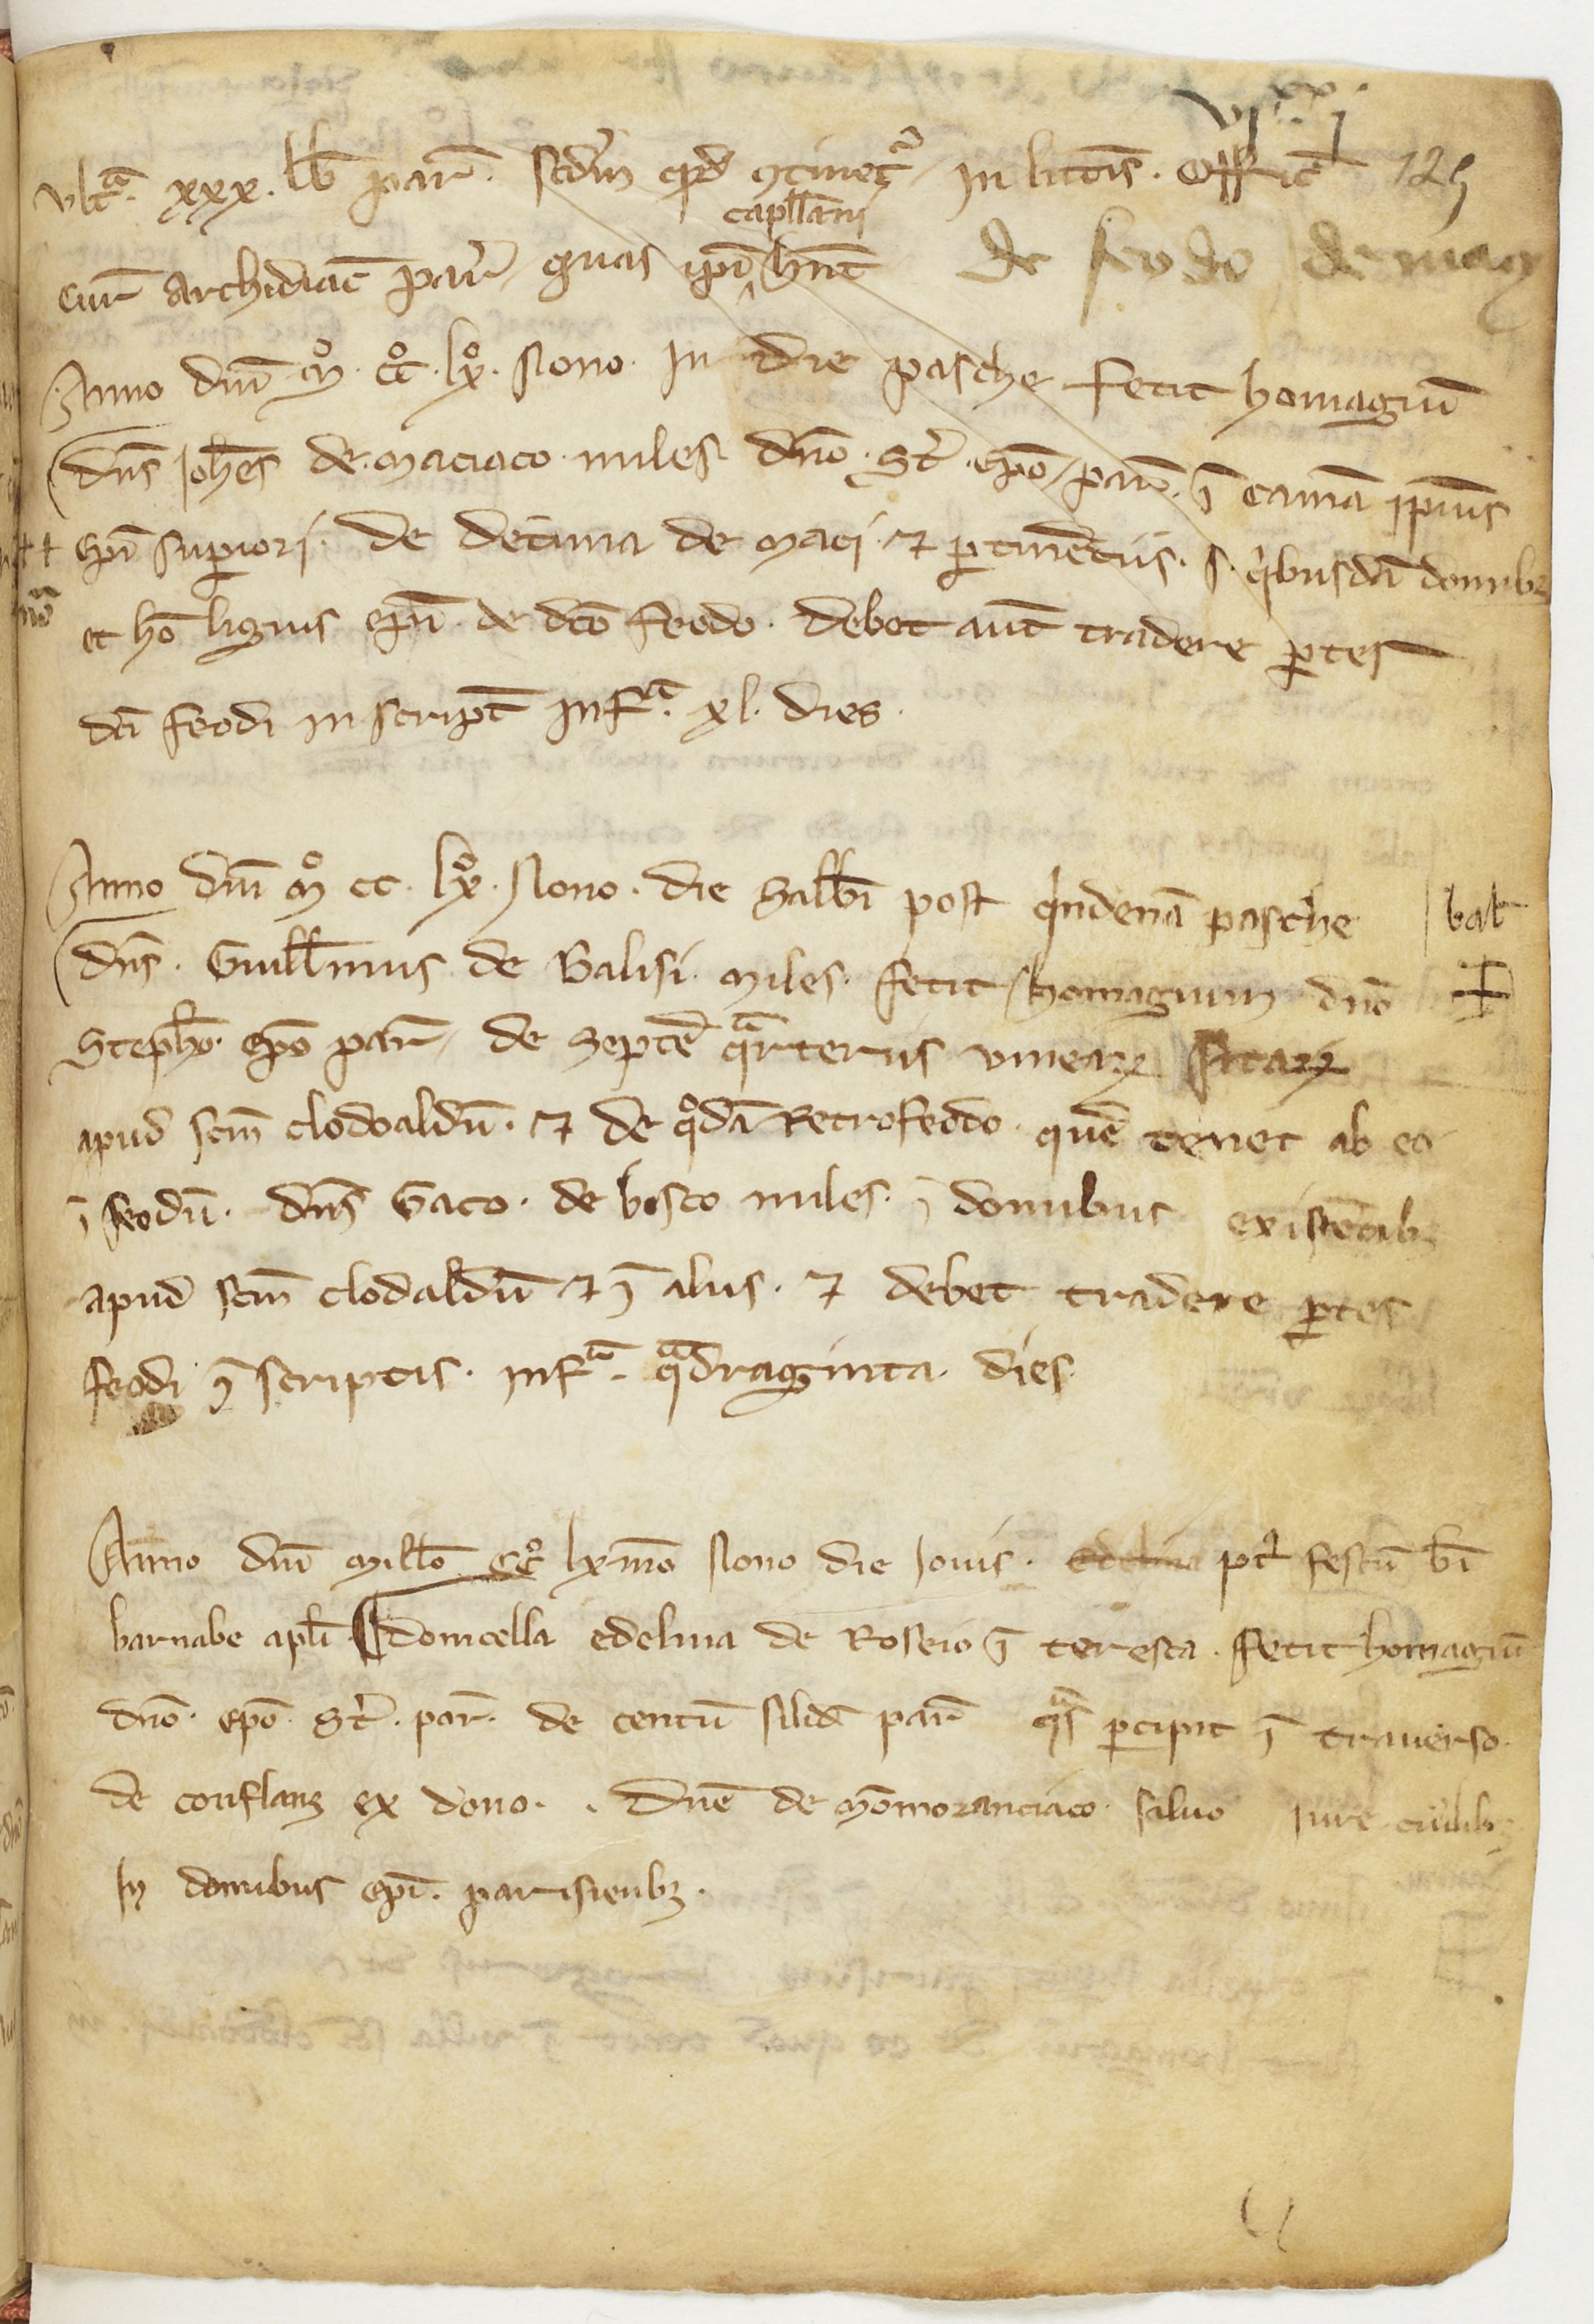 vj xx j
vltᵃ. xxx. lb par̄. scdm̄ qd ꝯtinetᷣ in litt̄is. Offic̄ 125
capll̄ani
cur̄ archidiac̄ par̄ quas ip̄i hn̄t de feodo de macy
Anno dn̄i mͦ. ccͦ. lxͦ. Nono. In die pasche fecit homagiū
dn̄s Joh̄es de maciaco miles dn̄o. St̄. ep̄o par̄. ī cam̄a ip̄ius
ep̄i supiori. de decima de maci. ⁊ ꝑtinētiis. s. qⁱbusdā domibꝫ
et hō ligius ep̄i. de dc̄o feodo. debet aūt tradere ꝑtes
dc̄i feodi in script̄ infᵃ. xl. dies.
Anno dn̄i mͦ cc. lxͦ. Nono. die Sabb̄i post qⁱndenā pasche bal
dn̄s. Guill̄mus de Balisi. miles. fecit homagium dn̄o
Steph̄o. ep̄o par̄. de septē qᵃrteriis vineaꝝ sitaꝝ
apud sc̄m clodoaldū. ⁊ de qͦdā Retrofeodo. quē tenet ab eo
ī feodū. dn̄s Gaco. de bosco miles. ī domibus existētibꝫ
apud sc̄m clodaldū ⁊ ī aliis. ⁊ debet tradere ꝑtes
feodi ī scriptis. infᵃ. qᵃdraginta. dies.
Anno dn̄i mill̄o ccͦ lxmō Nono die Jouis. edelina pᵗ festū bī
barnabe apl̄i domicella edelina de Roseio ī teresca. fecit homagiū
dn̄o. ep̄o. St̄. par̄. de centū solid̄ par̄ qᵃs ꝑcipit ī trauerso.
de conflanz ex dono.. Dn̄e de mōmoranciaco. saluo iure cuilibꝫ
In domibus ep̄i. parisiensibꝫ.